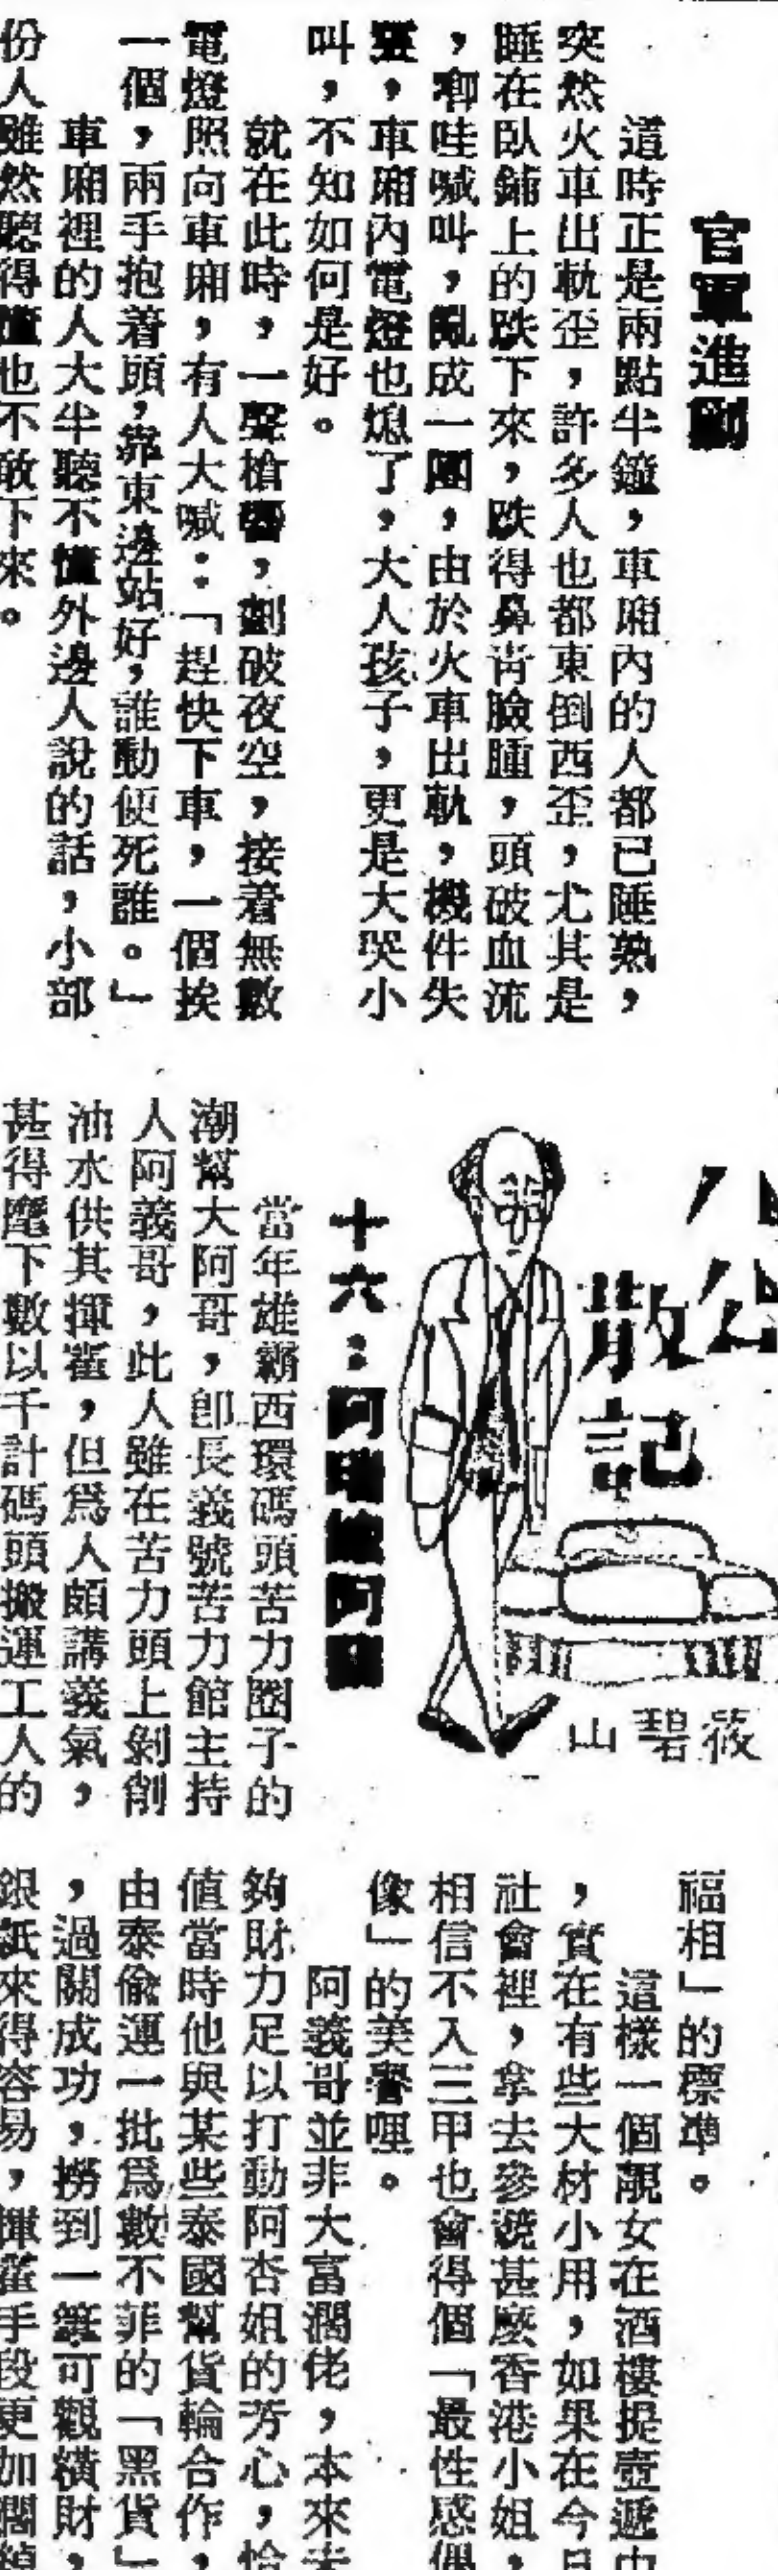 官軍進剿
這時正是兩點半鐘，車廂內的人都已睡熟，
突然火車出軌歪，許多人也都東倒西歪，尤其是
睡在臥鋪上的跌下來，跌得鼻青臉腫，頭破血流
，喞哇喊叫，亂成一團，由於火車出軌，機件失
靈，車廂內電燈也熄了，大人孩子，更是大哭小
叫，不知如何是好。
就在此時，一聲槍響，劃破夜空，接着無數
電燈照向車廂，有人大喊：「趕快下車，一個挨
一個，兩手抱着頭，靠東邊站好，誰動便死誰。」
車廂裡的人大半聽不懂外邊人說的話，小部
份人雖然聽得懂也不敢下來。
公
散記
筱碧山
十六：阿
當年雄霸西環碼頭苦力圈子的
潮幫大阿哥，卽長義號苦力館主持
人阿義哥，此人雖在苦力頭上剝削
油水供其揮霍，但爲人頗講義氣，
甚得麾下數以千計碼頭搬運工人的
福相」的標準。
這樣一個靚女在酒樓提壺遞巾
，實在有些大材小用，如果在今日
社會裡，拿去參競甚麼香港小姐，
相信不入三甲也會得個「最性感偶
像」的美譽哩。
阿義哥並非大富濶佬，本來未
夠財力足以打動阿杏姐的芳心，恰
值當時他與某些泰國幫貨輪合作，
由泰偷運一批爲數不菲的「黑貨」
，過關成功，撈到一筆可觀橫財，
銀紙來得容易，揮霍手段更加濶綽